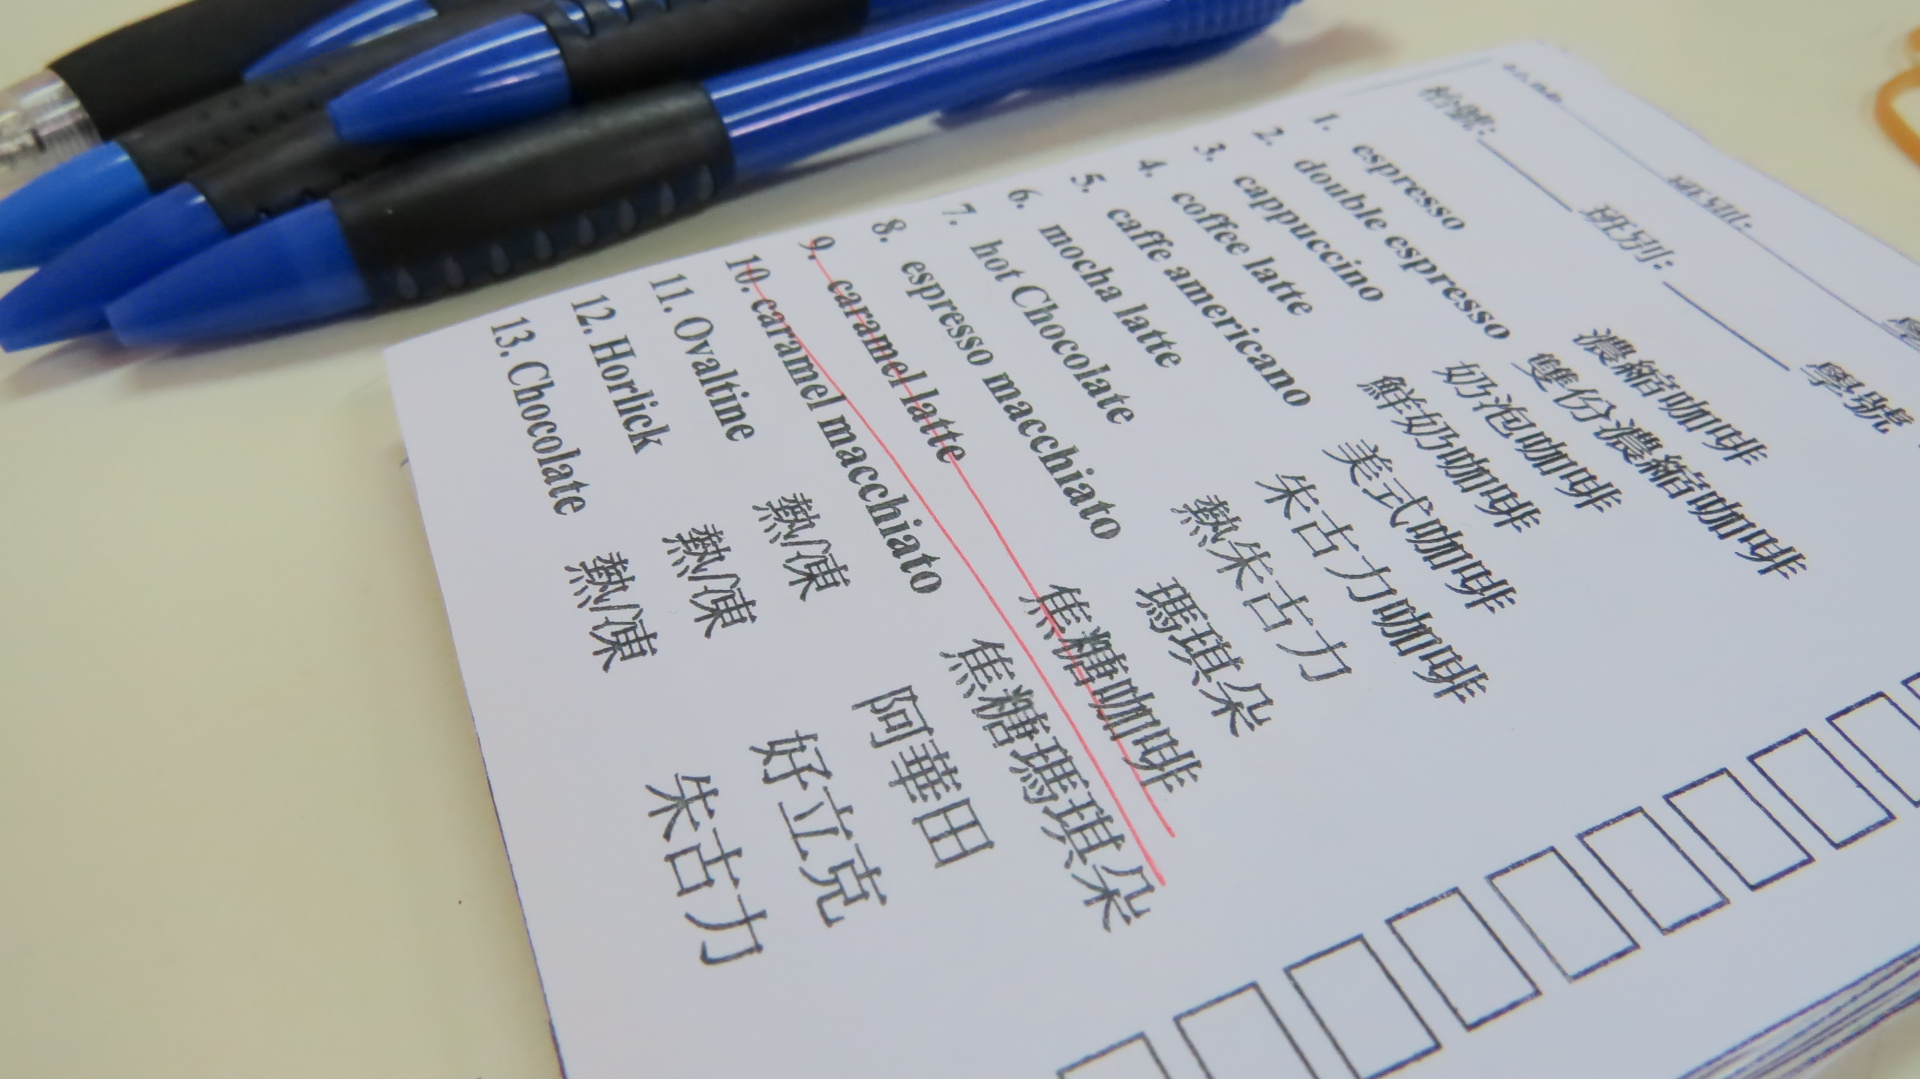 枱號: 班別: 學號
1. espresso 濃縮咖啡
2. double espresso 雙份濃縮咖啡
3. cappuccino 奶泡咖啡
4. coffee latte 鮮奶咖啡
5. caffe americano 美式咖啡
6. mocha latte 朱古力咖啡
7. hot Chocolate 熱朱古力
8. espresso macchiato 瑪琪朵
9. caramel latte 焦糖咖啡
10. caramel macchiato 焦糖瑪琪朵
11. Ovaltine 熱/凍 阿華田
12. Horlick 熱/凍 好立克
13. Chocolate 熱/凍 朱古力